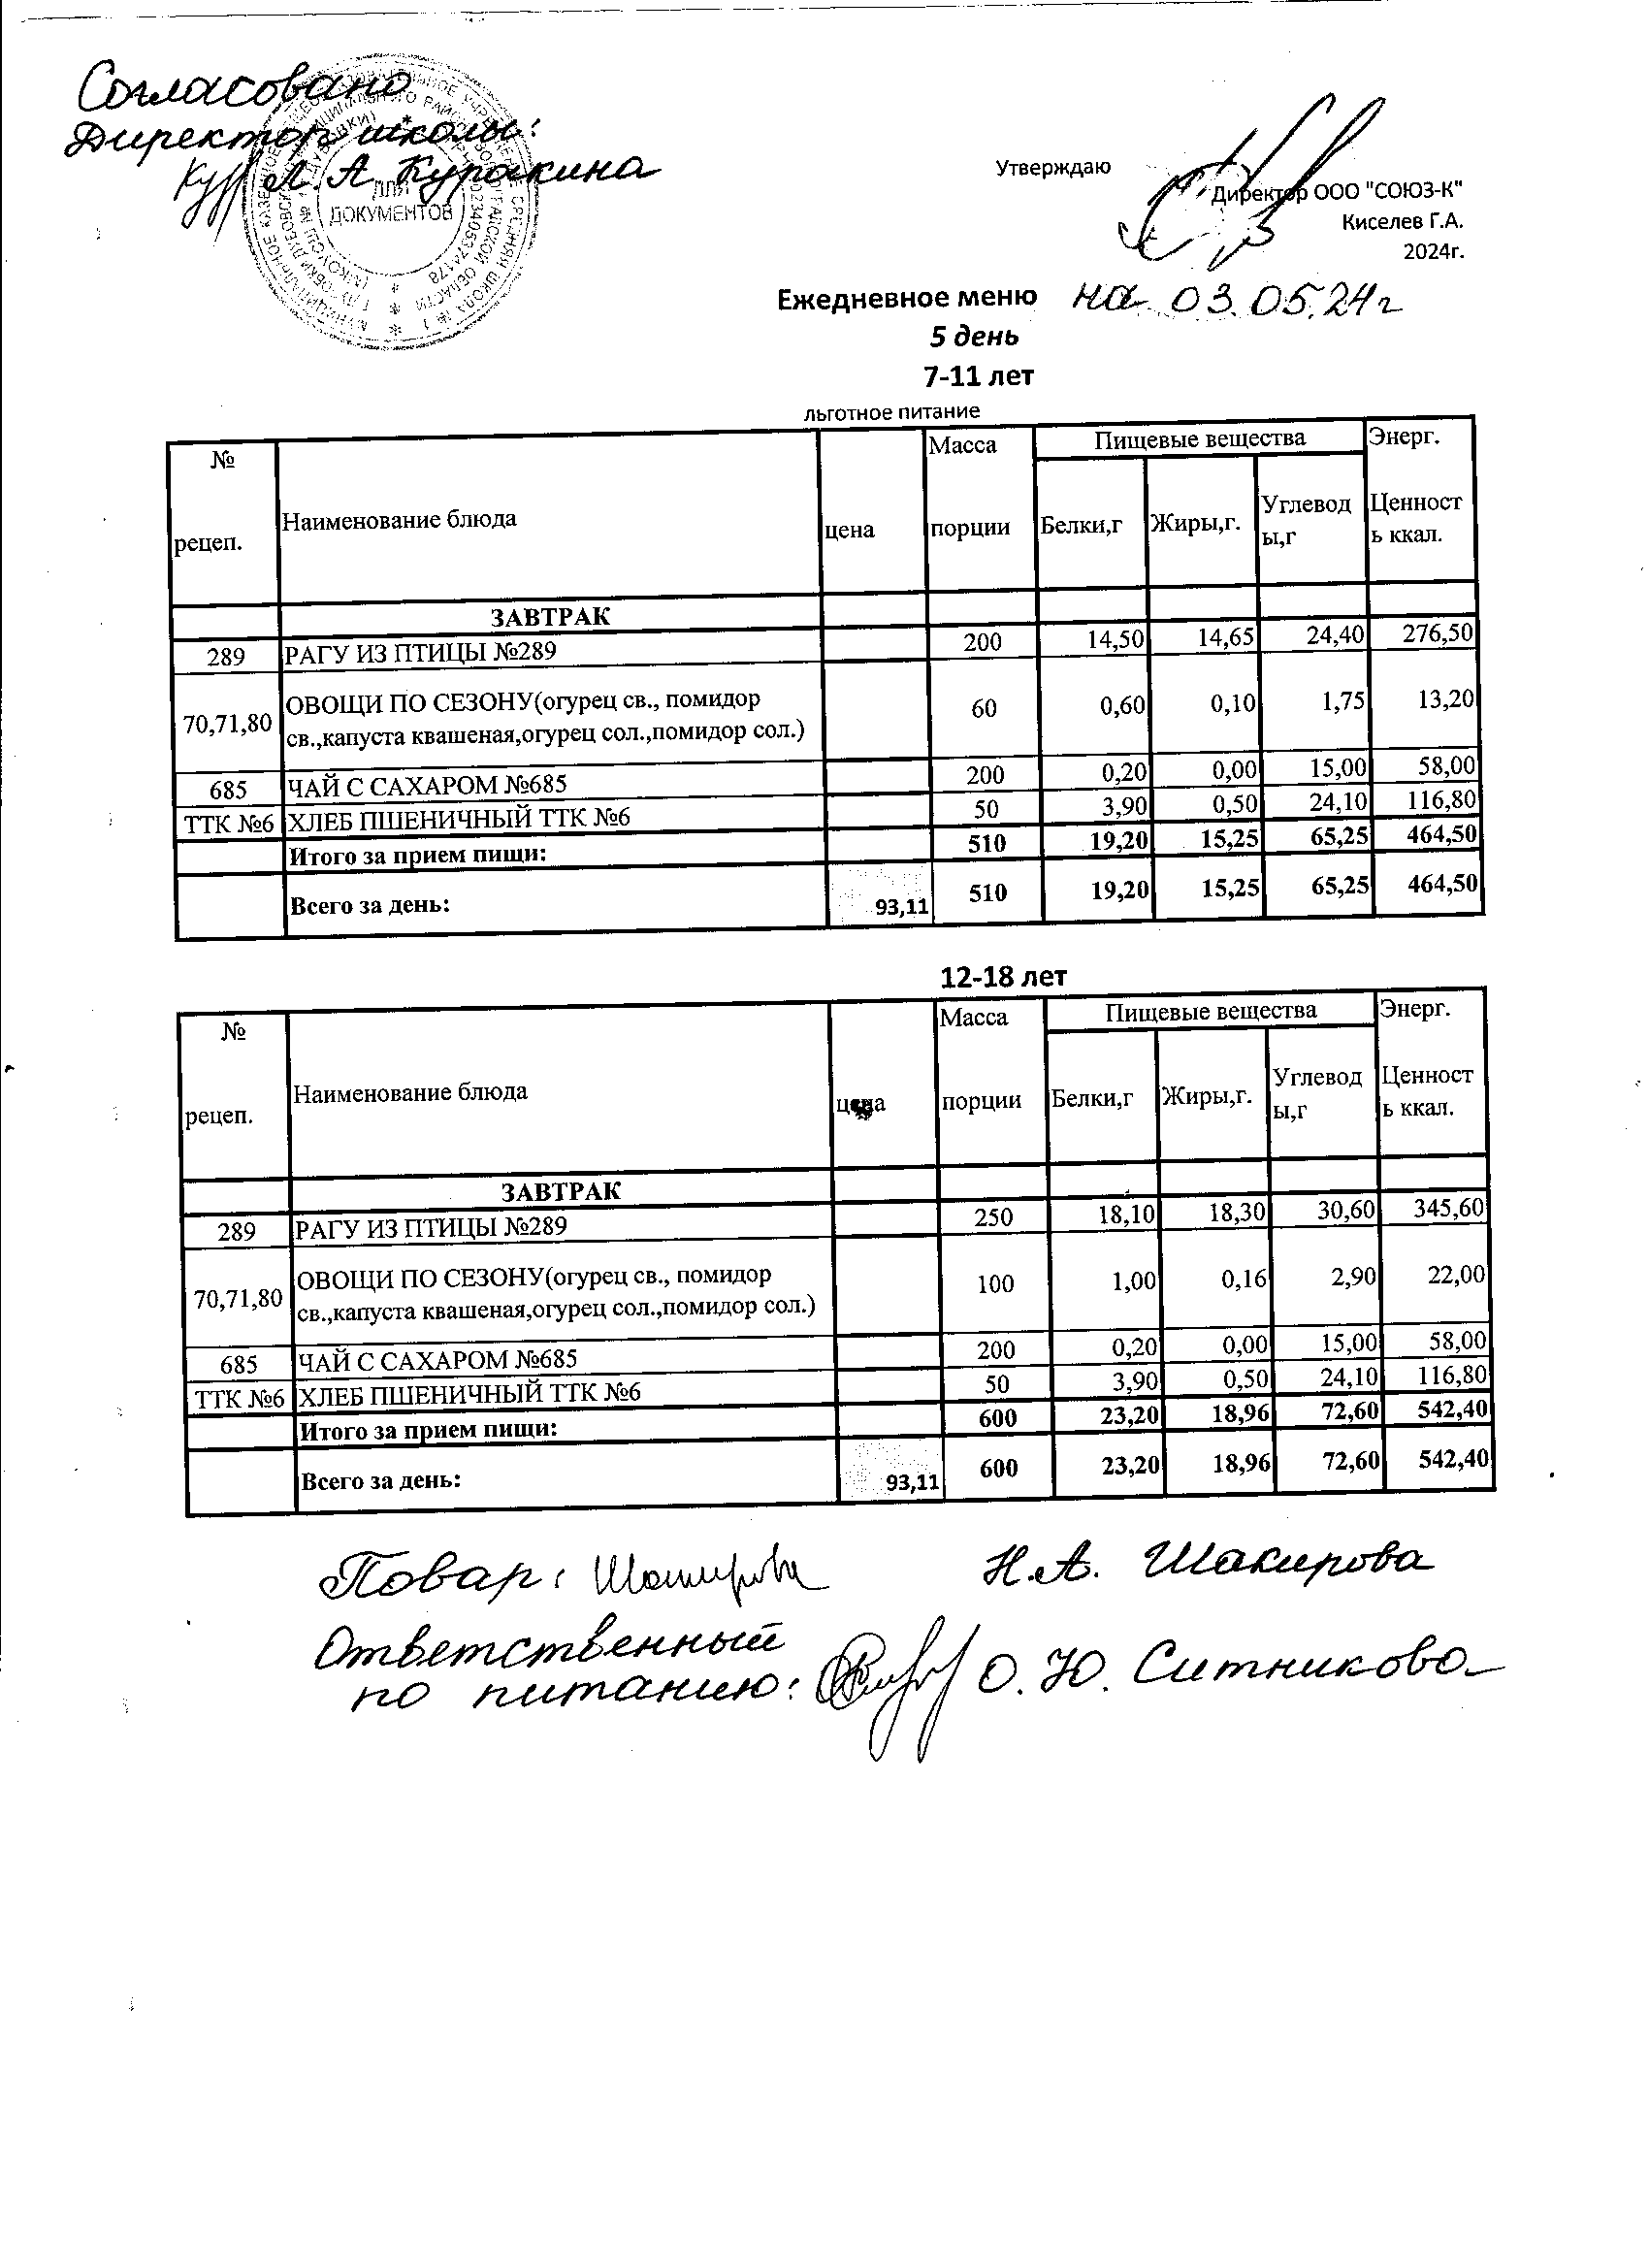 Согласовано
Директор школы:
Л. А. Куракина
ДЛЯ
ДОКУМЕНТОВ
Утверждаю
Директор ООО "СОЮЗ-К"
Киселев Г.А.
2024г.
Ежедневное меню на 03.05.24г
5 день
7-11 лет
льготное питание
№ рецеп. Наименование блюда цена Масса порции Пищевые вещества Энерг. Ценность ккал.
Белки,г Жиры,г. Углеводы,г
ЗАВТРАК
289 РАГУ ИЗ ПТИЦЫ №289 200 14,50 14,65 24,40 276,50
70,71,80 ОВОЩИ ПО СЕЗОНУ(огурец св., помидор св.,капуста квашеная,огурец сол.,помидор сол.) 60 0,60 0,10 1,75 13,20
685 ЧАЙ С САХАРОМ №685 200 0,20 0,00 15,00 58,00
ТТК №6 ХЛЕБ ПШЕНИЧНЫЙ ТТК №6 50 3,90 0,50 24,10 116,80
Итого за прием пищи: 510 19,20 15,25 65,25 464,50
Всего за день: 93,11 510 19,20 15,25 65,25 464,50
12-18 лет
№ рецеп. Наименование блюда цена Масса порции Пищевые вещества Энерг. Ценность ккал.
Белки,г Жиры,г. Углеводы,г
ЗАВТРАК
289 РАГУ ИЗ ПТИЦЫ №289 250 18,10 18,30 30,60 345,60
70,71,80 ОВОЩИ ПО СЕЗОНУ(огурец св., помидор св.,капуста квашеная,огурец сол.,помидор сол.) 100 1,00 0,16 2,90 22,00
685 ЧАЙ С САХАРОМ №685 200 0,20 0,00 15,00 58,00
ТТК №6 ХЛЕБ ПШЕНИЧНЫЙ ТТК №6 50 3,90 0,50 24,10 116,80
Итого за прием пищи: 600 23,20 18,96 72,60 542,40
Всего за день: 93,11 600 23,20 18,96 72,60 542,40
Повар: Н.А. Шакирова
Ответственный
по питанию: О. Ю. Ситникова